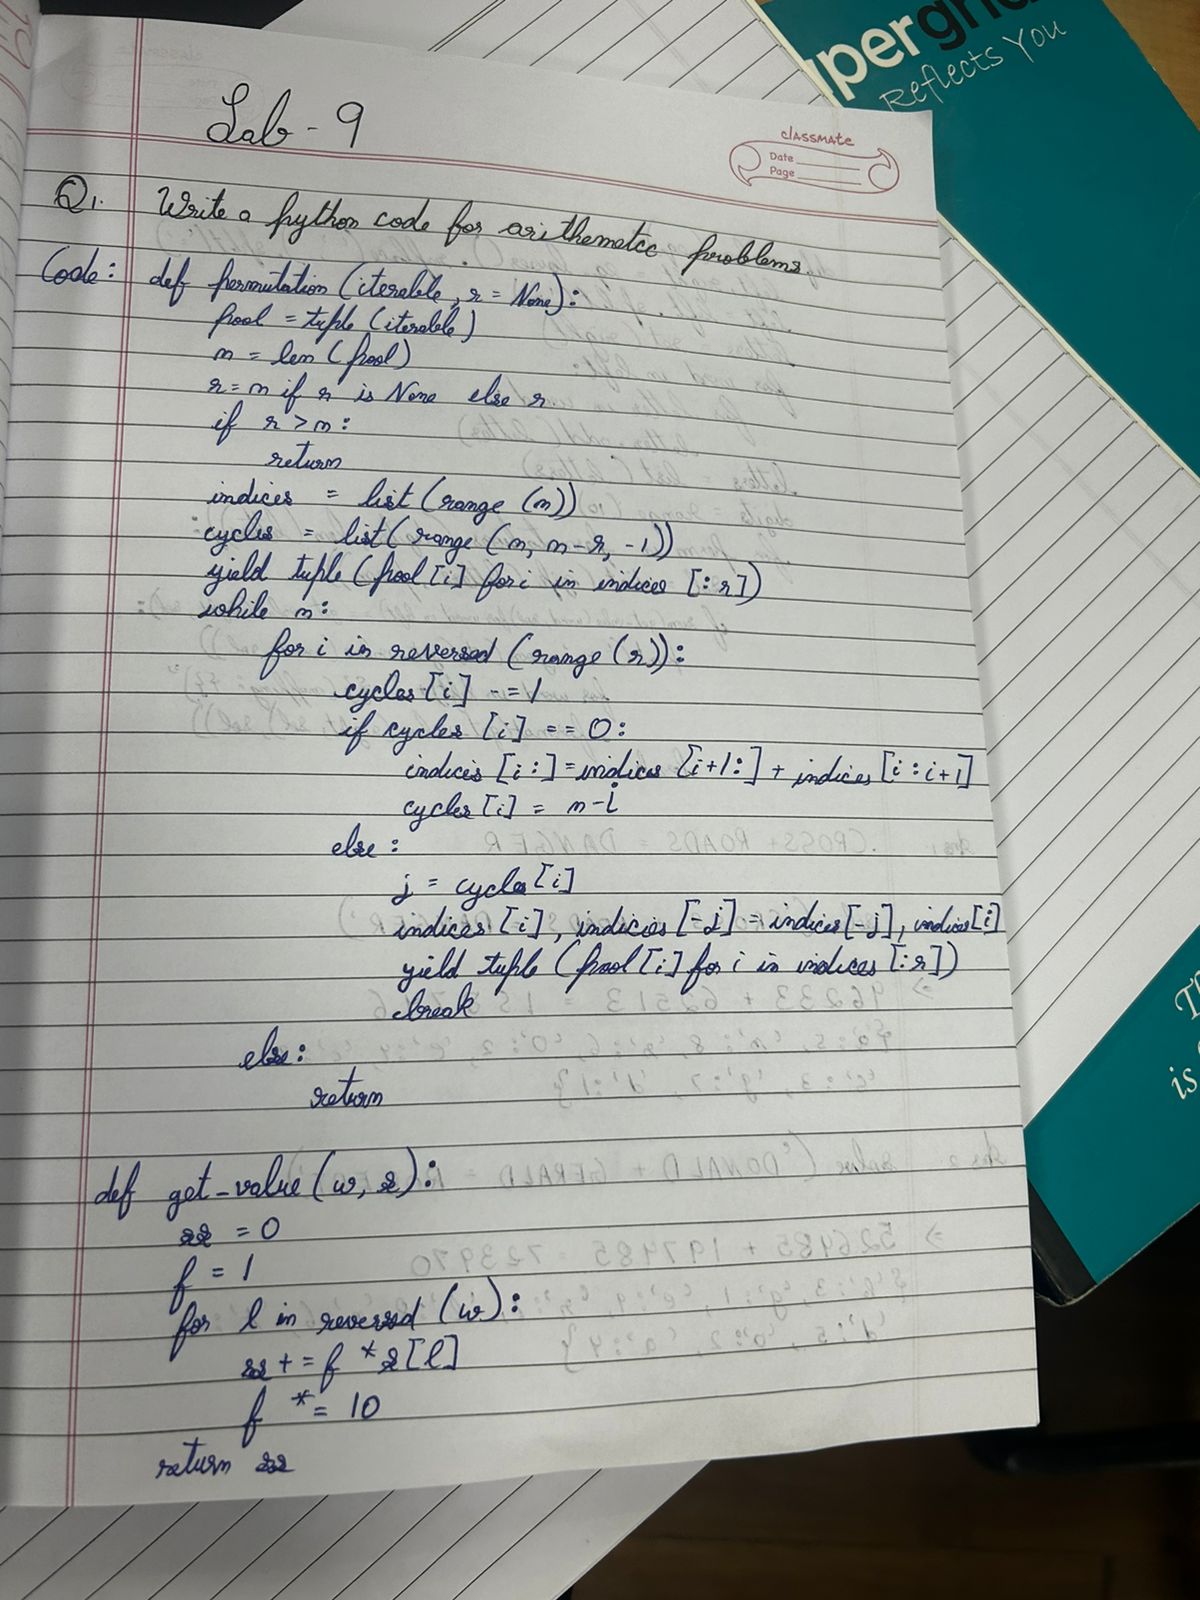 Lab - 9
classmate
Date
Page
Q1. Write a python code for arithemetcc problems.
Code: def permutation (iterable, r = None):
pool = tuple (iterable)
n = len (pool)
r = n if r is None else r
if r > n:
return
indices = list (range (n))
cycles = list (range (n, n-r, -1))
yield tuple (pool [i] for i in indices [:r])
while n:
for i in reversed (range (r)):
cycles [i] -= 1
if cycles [i] == 0:
indices [i:] = indices [i+1:] + indices [i:i+1]
cycles [i] = n-i
else:
j = cycles [i]
indices [i], indicies [-j] = indices [-j], indices [i]
yield tuple (pool [i] for i in indices [:r])
break
else:
return
def get-value (w, s):
f = 1
for l in reversed (w):
f *= 10
return
pergr
Reflects You
is